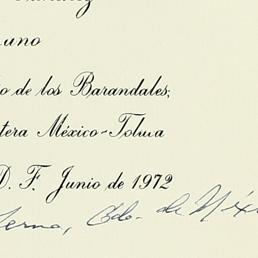 uno
o de los Barandales,
tera México-Toluca
D. F. Junio de 1972
Lerma, Edo. de Méxi